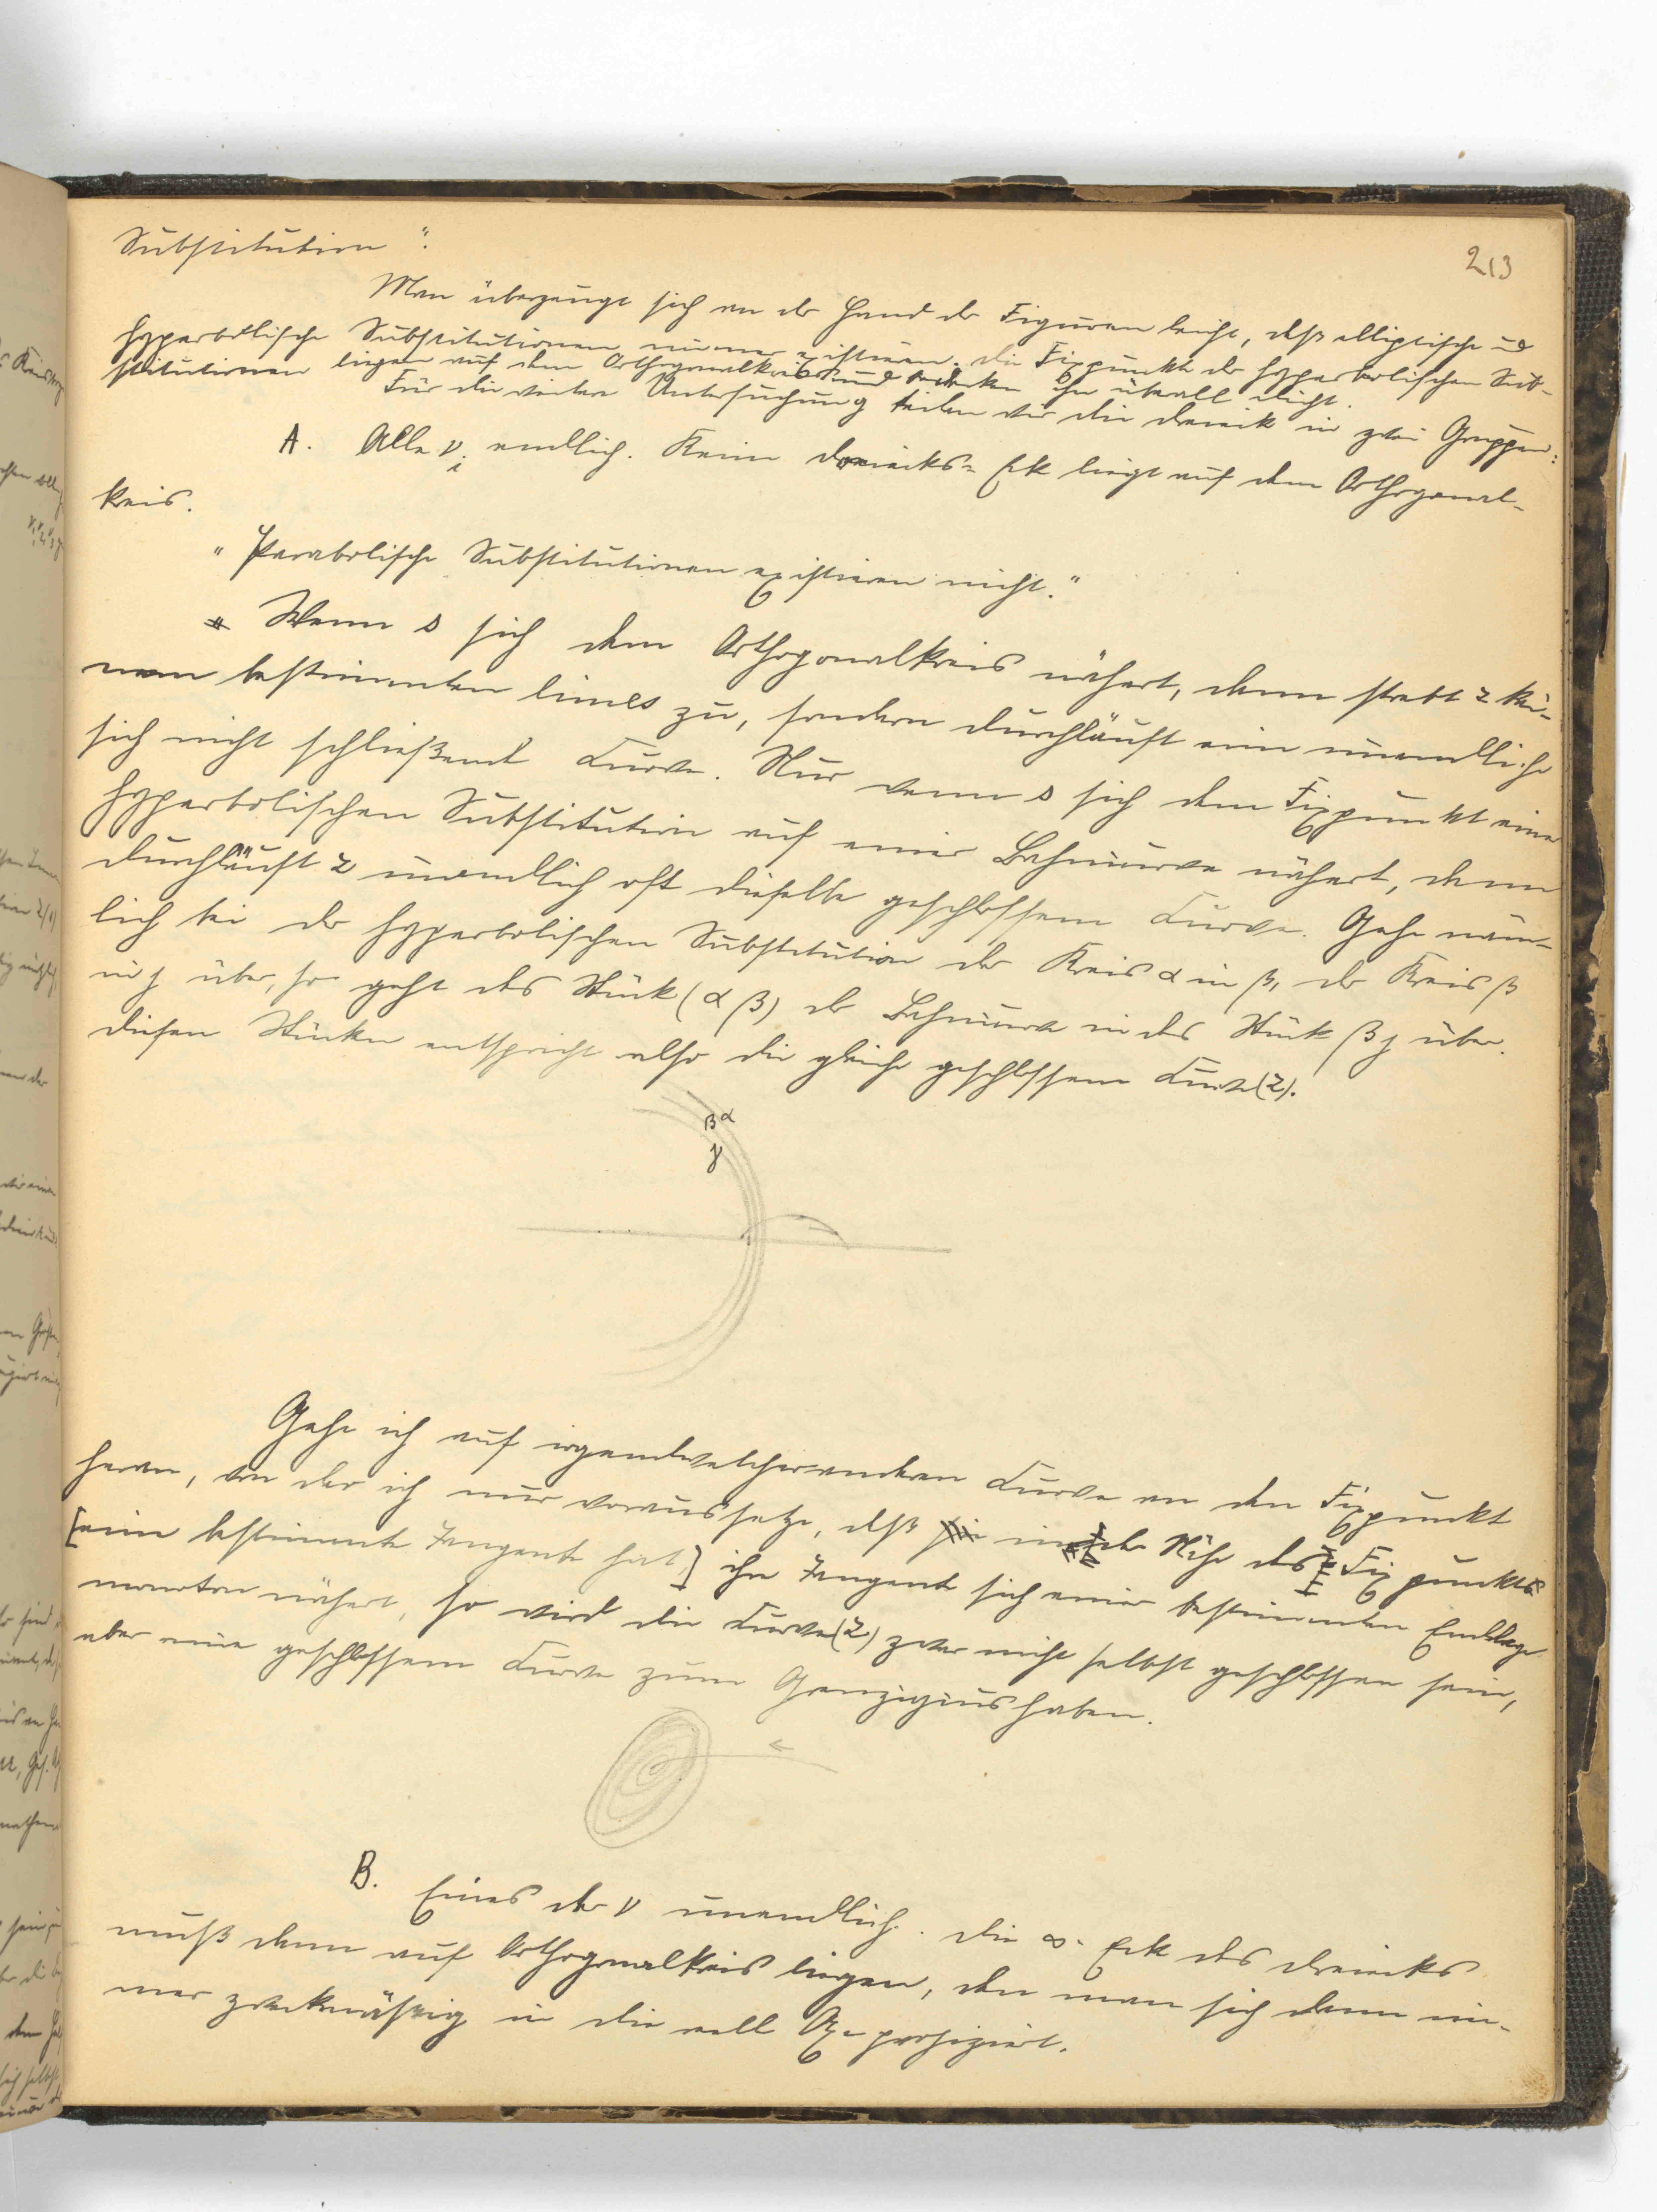 213
Substitution".
Man überzeugt sich an der Hand der Figuren leicht, daß elliptische und
hyperbolische Substitutionen immer existieren. Die Fixpunkte der hyperbolischen Sub-
stitutionen liegen auf dem Orthogonalkreis und bedecken ihn überall dicht.
Für die weitere Untersuchung teilen wir die Dreiecke in zwei Gruppen:
A. Alle ν_i endlich. Kein Dreiecks-Eck liegt auf dem Orthogonal-
kreis.
"Parabolische Substitutionen existieren nicht."
Wenn s sich dem Orthogonalkreis nähert, dann strebt z kei-
nem bestimmten limes zu, sondern durchläuft eine unendliche
sich nicht schließende Curve. Nur wenn s sich dem Fixpunkt einer
hyperbolischen Substitution auf einer Bahncurve nähert, dann
durchläuft z unendlich oft dieselbe geschlossene Curve. Gehe näm-
lich bei der hyperbolischen Substitution der Kreis α in β, der Kreis β
in γ über, so geht das Stück (α β) der Bahncurve in das Stück β γ über.
Diesen Stücken entspricht also die gleiche geschlossene Curve (z).
β α
γ
Gehe ich auf irgendwelcher anderen Curve an den Fixpunkt
heran, von der ich nur voraussetze, daß in der Nähe des Fixpunkts
[eine bestimmte Tangente hat] ihre Tangente sich einer bestimmten Endlage
monoton nähert, so wird die Curve (z) zwar nicht selbst geschlossen sein,
aber eine geschlossene Curve zum Grenzzyklus haben.
B. Eines der ν unendlich. Die ∞-Ecke des Dreiecks
muß dann auf Orthogonalkreis liegen, den man sich dann im-
mer zweckmäßig in die reelle Axe projiziert.